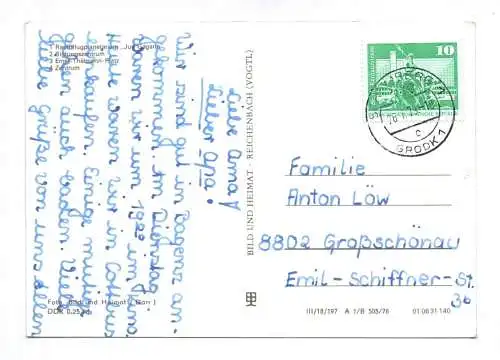 1 Raumflugplanetarium "Juri Gagarin"
2 Bildungszentrum
3 Ernst-Thälmann-Platz
4 Zentrum
Liebe Oma!
Lieber Opa!
Wir sind gut in Bagenz an-
gekommen. Am Dienstag
waren wir um 19²⁰ im Kino.
Heute waren wir in Cottbus
einkaufen. Einige mutige
gehen auch baden. Viele
liebe Grüße von uns allen
Foto: Bild und Heimat (Darr)
DDR 0,25
BILD UND HEIMAT · REICHENBACH (VOGTL)
III/18/197 A 1/B 505/76 01 06 31 140
10
GRODK 1
c
Familie
Anton Löw
8802 Großschönau
Emil-Schiffner-St.
36